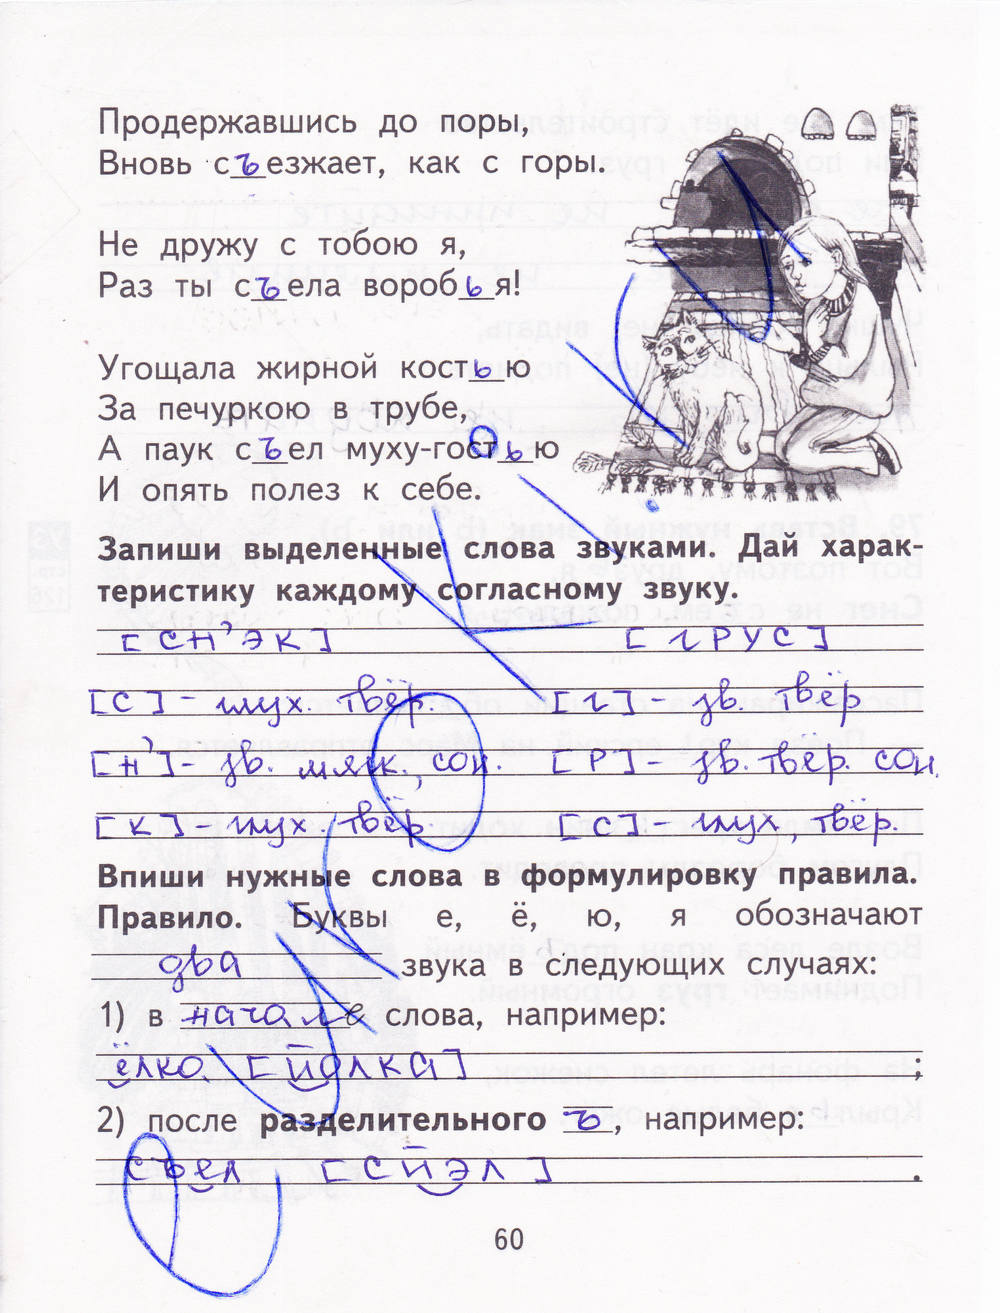 Продержавшись до поры,
Вновь съезжает, как с горы.
Не дружу с тобою я,
Раз ты съела воробья!
Угощала жирной костью
За печуркою в трубе,
А паук съел муху-гостью
И опять полез к себе.
Запиши выделенные слова звуками. Дай харак-
теристику каждому согласному звуку.
[СН'ЭК] [ГРУС]
[С] - глух. твёр. [Г] - зв. твёр
[Н'] - зв. мягк., сон. [Р] - зв. твёр. сон.
[К] - глух твёр [С] глух, твёр.
Впиши нужные слова в формулировку правила.
Правило. Буквы е, ё, ю, я обозначают
два звука в следующих случаях:
1) в начале слова, например:
ёлка [ЙОЛКА] ;
2) после разделительного ъ, например:
съел [СЙЭЛ] .
60